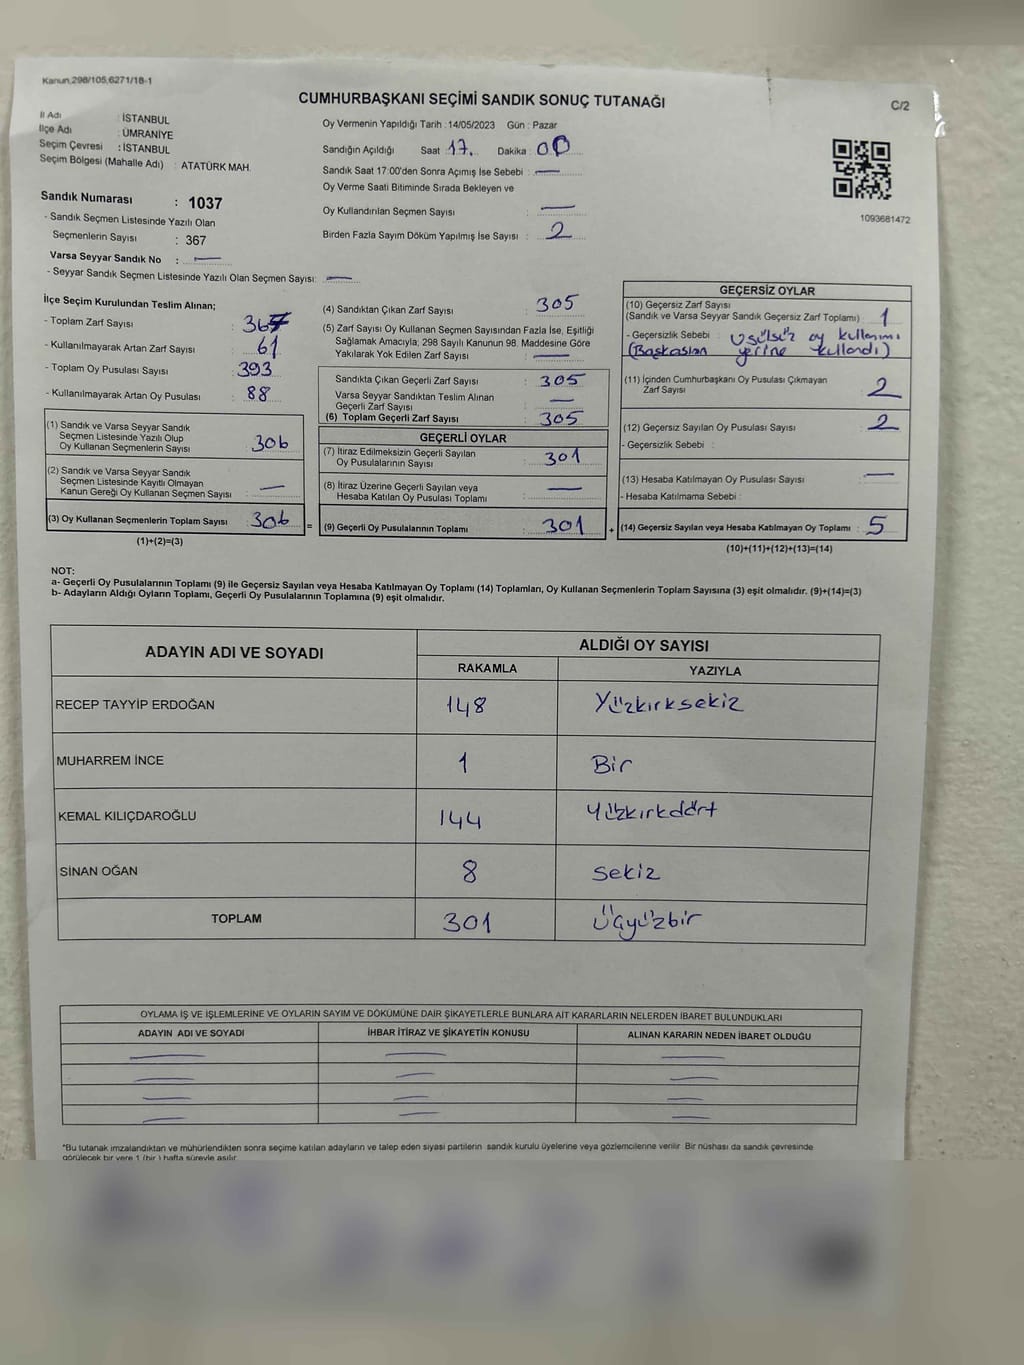 Kanun,298/105,6271/18-1
CUMHURBAŞKANI SEÇİMİ SANDIK SONUÇ TUTANAĞI
C/2
İl Adı : İSTANBUL
İlçe Adı : ÜMRANİYE
Seçim Çevresi : İSTANBUL
Seçim Bölgesi (Mahalle Adı) : ATATÜRK MAH.
Sandık Numarası : 1037
- Sandık Seçmen Listesinde Yazılı Olan
Seçmenlerin Sayısı : 367
Varsa Seyyar Sandık No : —
- Seyyar Sandık Seçmen Listesinde Yazılı Olan Seçmen Sayısı: —
Oy Vermenin Yapıldığı Tarih : 14/05/2023 Gün : Pazar
Sandığın Açıldığı Saat : 17. Dakika : 00
Sandık Saat 17:00'den Sonra Açımış İse Sebebi : —
Oy Verme Saati Bitiminde Sırada Bekleyen ve
Oy Kullandırılan Seçmen Sayısı : —
Birden Fazla Sayım Döküm Yapılmış İse Sayısı : 2
1093681472
İlçe Seçim Kurulundan Teslim Alınan;
- Toplam Zarf Sayısı : 367
- Kullanılmayarak Artan Zarf Sayısı : 61
- Toplam Oy Pusulası Sayısı : 393
- Kullanılmayarak Artan Oy Pusulası : 88
(1) Sandık ve Varsa Seyyar Sandık
Seçmen Listesinde Yazılı Olup
Oy Kullanan Seçmenlerin Sayısı : 306
(2) Sandık ve Varsa Seyyar Sandık
Seçmen Listesinde Kayıtlı Olmayan
Kanun Gereği Oy Kullanan Seçmen Sayısı : —
(3) Oy Kullanan Seçmenlerin Toplam Sayısı : 306 =
(1)+(2)=(3)
(4) Sandıktan Çıkan Zarf Sayısı : 305
(5) Zarf Sayısı Oy Kullanan Seçmen Sayısından Fazla İse, Eşitliği
Sağlamak Amacıyla; 298 Sayılı Kanunun 98. Maddesine Göre
Yakılarak Yok Edilen Zarf Sayısı : —
Sandıkta Çıkan Geçerli Zarf Sayısı : 305
Varsa Seyyar Sandıktan Teslim Alınan
Geçerli Zarf Sayısı : —
(6) Toplam Geçerli Zarf Sayısı : 305
GEÇERLİ OYLAR
(7) İtiraz Edilmeksizin Geçerli Sayılan
Oy Pusulalarının Sayısı : 301
(8) İtiraz Üzerine Geçerli Sayılan veya
Hesaba Katılan Oy Pusulası Toplamı : —
(9) Geçerli Oy Pusulalarının Toplamı : 301 +
GEÇERSİZ OYLAR
(10) Geçersiz Zarf Sayısı
(Sandık ve Varsa Seyyar Sandık Geçersiz Zarf Toplamı) : 1
- Geçersizlik Sebebi : Usülsüz oy kullanımı
(Başkasının yerine kullandı)
(11) İçinden Cumhurbaşkanı Oy Pusulası Çıkmayan
Zarf Sayısı : 2
(12) Geçersiz Sayılan Oy Pusulası Sayısı : 2
- Geçersizlik Sebebi :
(13) Hesaba Katılmayan Oy Pusulası Sayısı : —
- Hesaba Katılmama Sebebi :
(14) Geçersiz Sayılan veya Hesaba Katılmayan Oy Toplamı : 5
(10)+(11)+(12)+(13)=(14)
NOT:
a- Geçerli Oy Pusulalarının Toplamı (9) ile Geçersiz Sayılan veya Hesaba Katılmayan Oy Toplamı (14) Toplamları, Oy Kullanan Seçmenlerin Toplam Sayısına (3) eşit olmalıdır. (9)+(14)=(3)
b- Adayların Aldığı Oyların Toplamı, Geçerli Oy Pusulalarının Toplamına (9) eşit olmalıdır.
ADAYIN ADI VE SOYADI
ALDIĞI OY SAYISI
RAKAMLA YAZIYLA
RECEP TAYYİP ERDOĞAN 148 Yüzkırksekiz
MUHARREM İNCE 1 Bir
KEMAL KILIÇDAROĞLU 144 Yüzkırkdört
SİNAN OĞAN 8 Sekiz
TOPLAM 301 Üçyüzbir
OYLAMA İŞ VE İŞLEMLERİNE VE OYLARIN SAYIM VE DÖKÜMÜNE DAİR ŞİKAYETLERLE BUNLARA AİT KARARLARIN NELERDEN İBARET BULUNDUKLARI
ADAYIN ADI VE SOYADI İHBAR İTİRAZ VE ŞİKAYETİN KONUSU ALINAN KARARIN NEDEN İBARET OLDUĞU
— — —
— — —
— — —
— — —
*Bu tutanak imzalandıktan ve mühürlendikten sonra seçime katılan adayların ve talep eden siyasi partilerin sandık kurulu üyelerine veya gözlemcilerine verilir. Bir nüshası da sandık çevresinde
görülecek bir yere 1 (bir ) hafta süreyle asılır.